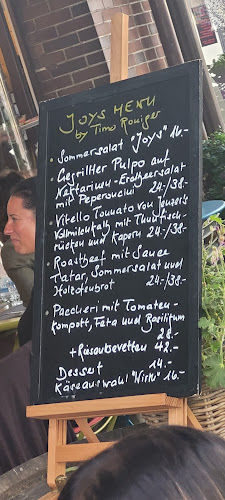 JOYS MENU
by Timo Roniger
• Sommersalat "JOYS" 16.-
• Gegrillter Pulpo auf
Nektarinen-Erdbeersalat
mit Peperoncini 24-/38-
• Vitello Tonnato von
Vollmilchkalb mit Thunfisch-
rücken und Kapern 24-/38-
• Roastbeef mit Sauce
Tatar, Sommersalat und
Holzofenbrot 24-/38-
• Paccheri mit Tomaten-
kompott, Feta und Basilikum
28.-
+ Riesencrevetten 42.-
Dessert 14.-
Käseauswahl "Wirth" 16.-